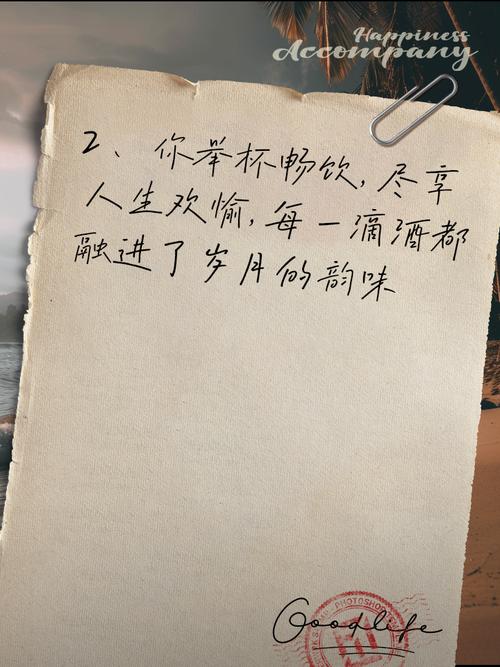 Happiness
Accompany
2、你举杯畅饮，尽享
人生欢愉，每一滴酒都
融进了岁月的韵味
Good life
PHOTOSHOP